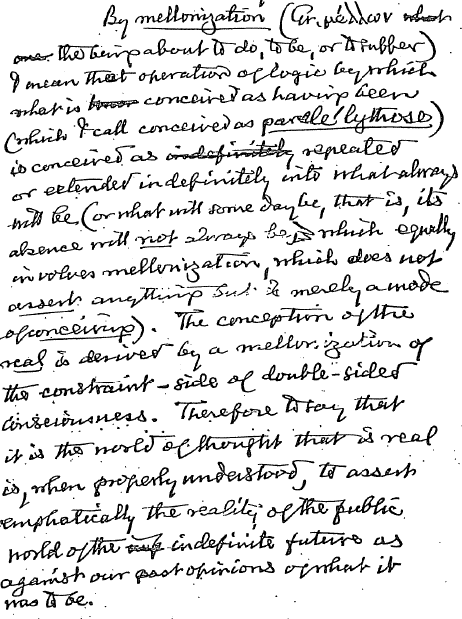 By mellonization (Gr. μέλλων what
one the being about to do, to be, or to suffer)
I mean that operation of logic by which
what is conceived as having been
(which I call conceived as parelelythose)
is conceived as indefinitely repeated
or extended indefinitely into what always
will be (or what will some day be, that is, its
absence will not always be), which equally
involves mellonization, which does not
assert anything but is merely a mode
of conceiving). The conception of the
real is derived by a mellonization of
the constraint-side of double-sided
consciousness. Therefore to say that
it is the world of thought that is real
is, when properly understood, to assert
emphatically the reality of the public
world of the indefinite future as
against our past opinions of what it
was to be.